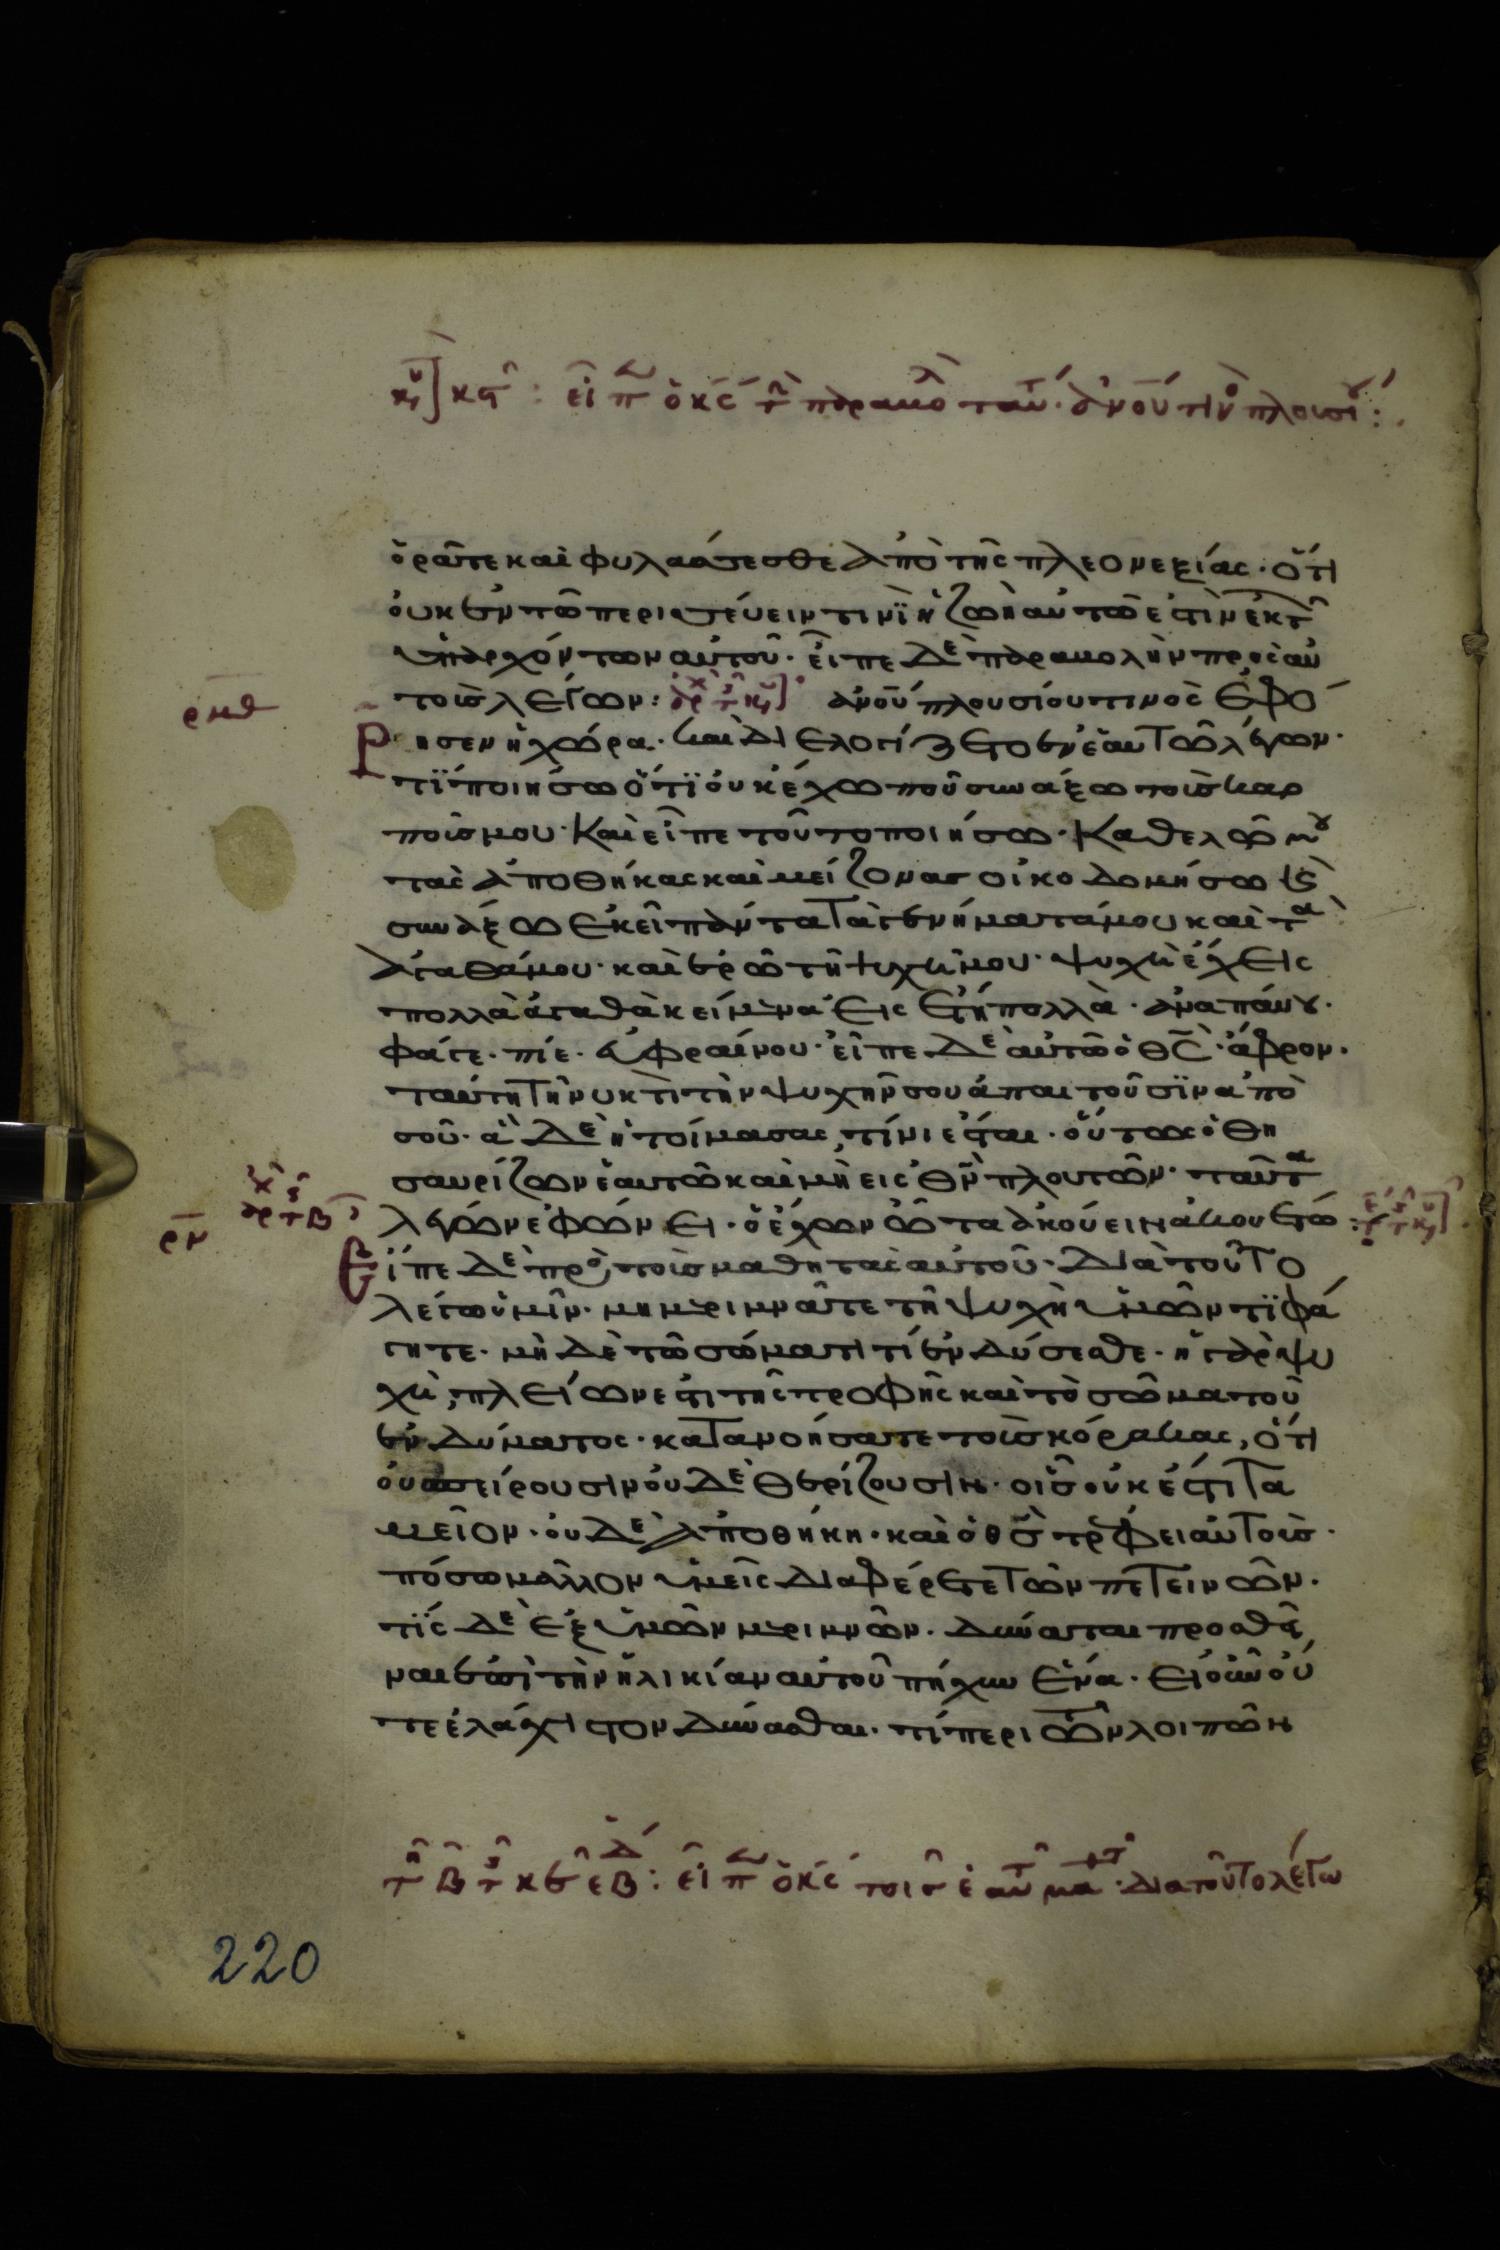 ὁρᾶτε καὶ φυλάσσεσθε ἀπὸ τῆς πλεονεξίας· ὅτι
οὐκ ἐν τῶ περισσεύειν τινὶ ἡ ζωὴ αὐτῶ ἐστὶν ἐκ τ
ὑπαρχόντων αὐτοῦ· εἶπε δὲ παραβολὴν πρὸς αὐ
τοὺς λέγων: ἀνου πλουσίου τινὸς εὐφό
ρμθ
Ρησεν ἡ χώρα· καὶ διελογίζετο ἐν ἑαυτῶ λέγων·
τί ποιήσω ὅτι οὐκ ἔχω ποῦ συνάξω τοὺς καρ
ποὺς μου· Καὶ εἶπε τοῦτο ποιήσω· Καθελῶ μου
τὰς ἀποθήκας καὶ μείζονας οἰκοδομήσω κὶ
συνάξω ἐκεῖ πάντα τὰ γενήματά μου καὶ τὰ
ἀγαθά μου· καὶ ἐρῶ τῆ ψυχῆ μου· ψυχὴ ἔχεις
πολλὰ ἀγαθὰ κείμενα εἰς ἔτη πολλὰ· ἀναπαύου·
φάγε· πίε· εὐφραίνου· εἶπε δὲ αὐτῶ ὁ θς· ἄφρον·
ταύτη τῆ νυκτὶ τὴν ψυχήν σου ἀπαιτοῦσιν ἀπὸ
σοῦ· ἃ δὲ ἡτοίμασας, τίνι ἔσται· οὕτως ὁ θη
σαυρίζων ἑαυτῶ καὶ μὴ εἰς θν πλουτῶν· ταῦτα
λέγων ἐφώνει· ὁ ἔχων ὦτα ἀκούειν ἀκουέτω:
ρν
Εἶπε δὲ πρὸς τοὺς μαθητὰς αὐτοῦ· Διὰ τοῦτο
λέγω ὑμῖν· μὴ μεριμνᾶτε τῆ ψυχῆ ὑμῶν τί φά
γητε· μὴ δὲ τῶ σώματι τί ἐνδύσεσθε· ἡ γὰρ ψυ
χὴ, πλείων ἐστι τῆς τροφῆς καὶ τὸ σῶμα τοῦ
ἐνδύματος· κατανοήσατε τοὺς κόρακας, ὅτι
οὐ σπείρουσιν οὐδὲ θερίζουσιν· οἷς οὐκ ἔστι τα
μεῖον· οὐδὲ ἀποθήκη· καὶ ὁ θς τρέφει αὐτοὺς·
πόσω μᾶλλον ὑμεῖς διαφέρετε τῶν πετεινῶν·
τίς δὲ ἐξ ὑμῶν μεριμνῶν· δύναται προσθεῖ
ναι ἐπὶ τὴν ἡλικίαν αὐτοῦ πῆχυν ἕνα· εἰ οὖν οὔ
τε ἐλάχιστον δύνασθαι· τί περὶ τῶν λοιπῶν
διὰ τοῦτο λέγω
220